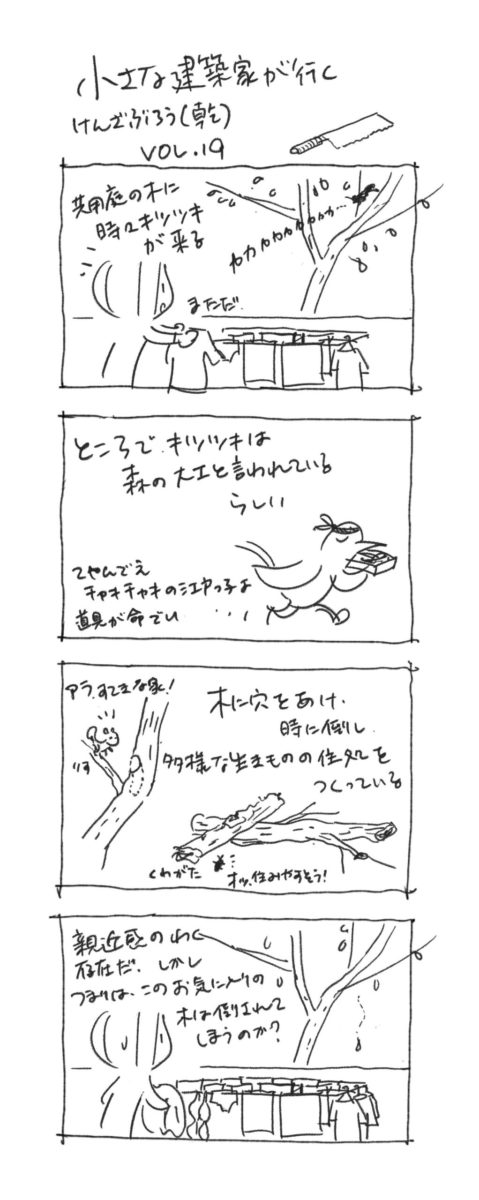 小さな建築家が行く
けんざぶろう(乾)
VOL.19
共用庭の木に
時々キツツキ
が来る
カカカカカカカカ…
まただ
ところで、キツツキは
森の大工と言われている
らしい
てやんでえ
チャキチャキの江戸っ子よ
道具が命でい
アラ、すてきな家!
りす
木に穴をあけ、
時に倒し
多様な生きものの住処を
つくっている
くわがた
オッ、住みやすそう!
親近感のわく
存在だ、しかし
つまりは、このお気に入りの
木は倒されて
しまうのか?